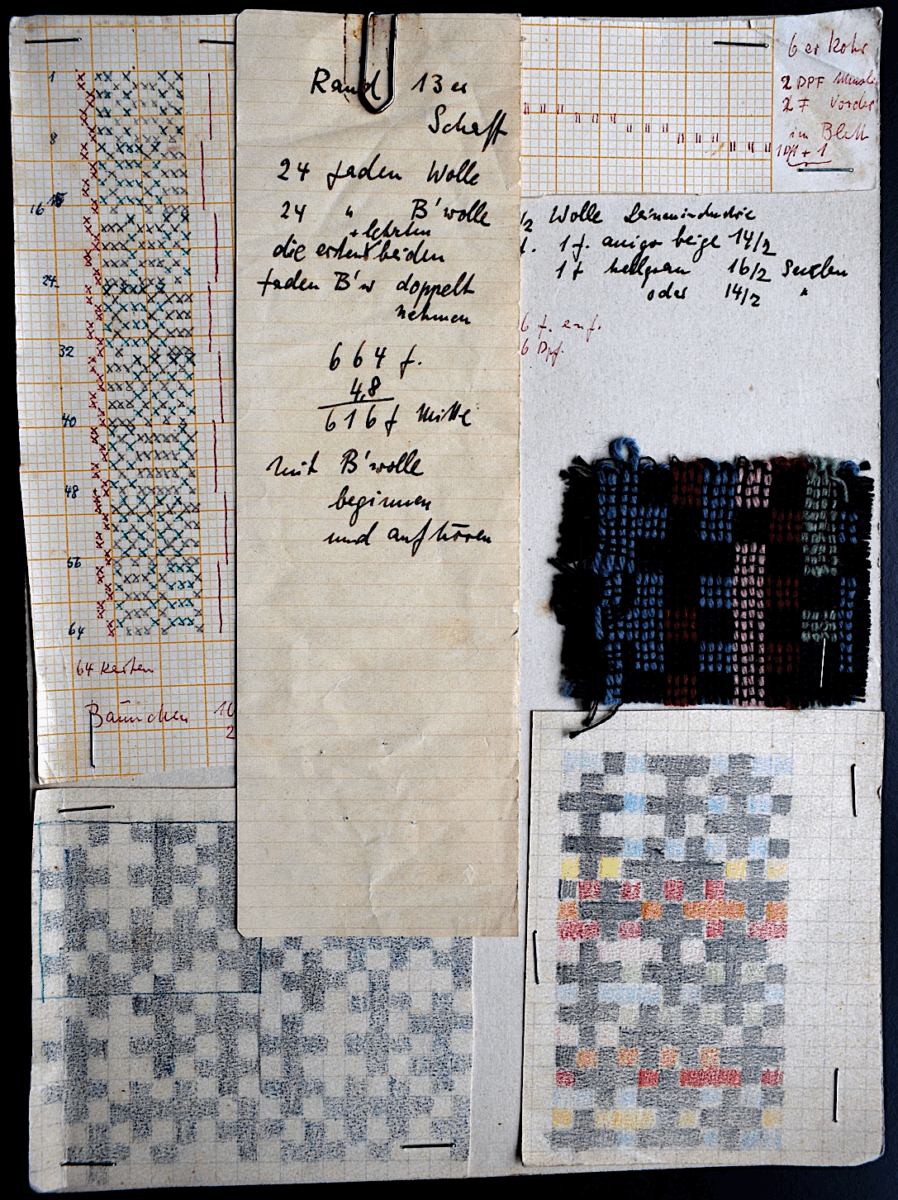 1
8
16
24
32
40
48
56
64
64 Karten
Bäumchen
Rand 13er
Schaft
24 faden Wolle
24 " B'wolle
die ersten beiden
faden B'w doppelt
nehmen
664 f.
4,8
616 f Mitte
mit B'wolle
beginnen
und aufhören
6er Rohr
2 DPF
2 F
im Blatt
+ 1
Wolle Leinenindustrie
1 f. beige 14/2
1 f hellgrau 16/2
oder 14/2 "
6 f. enf.
6 Dpf.